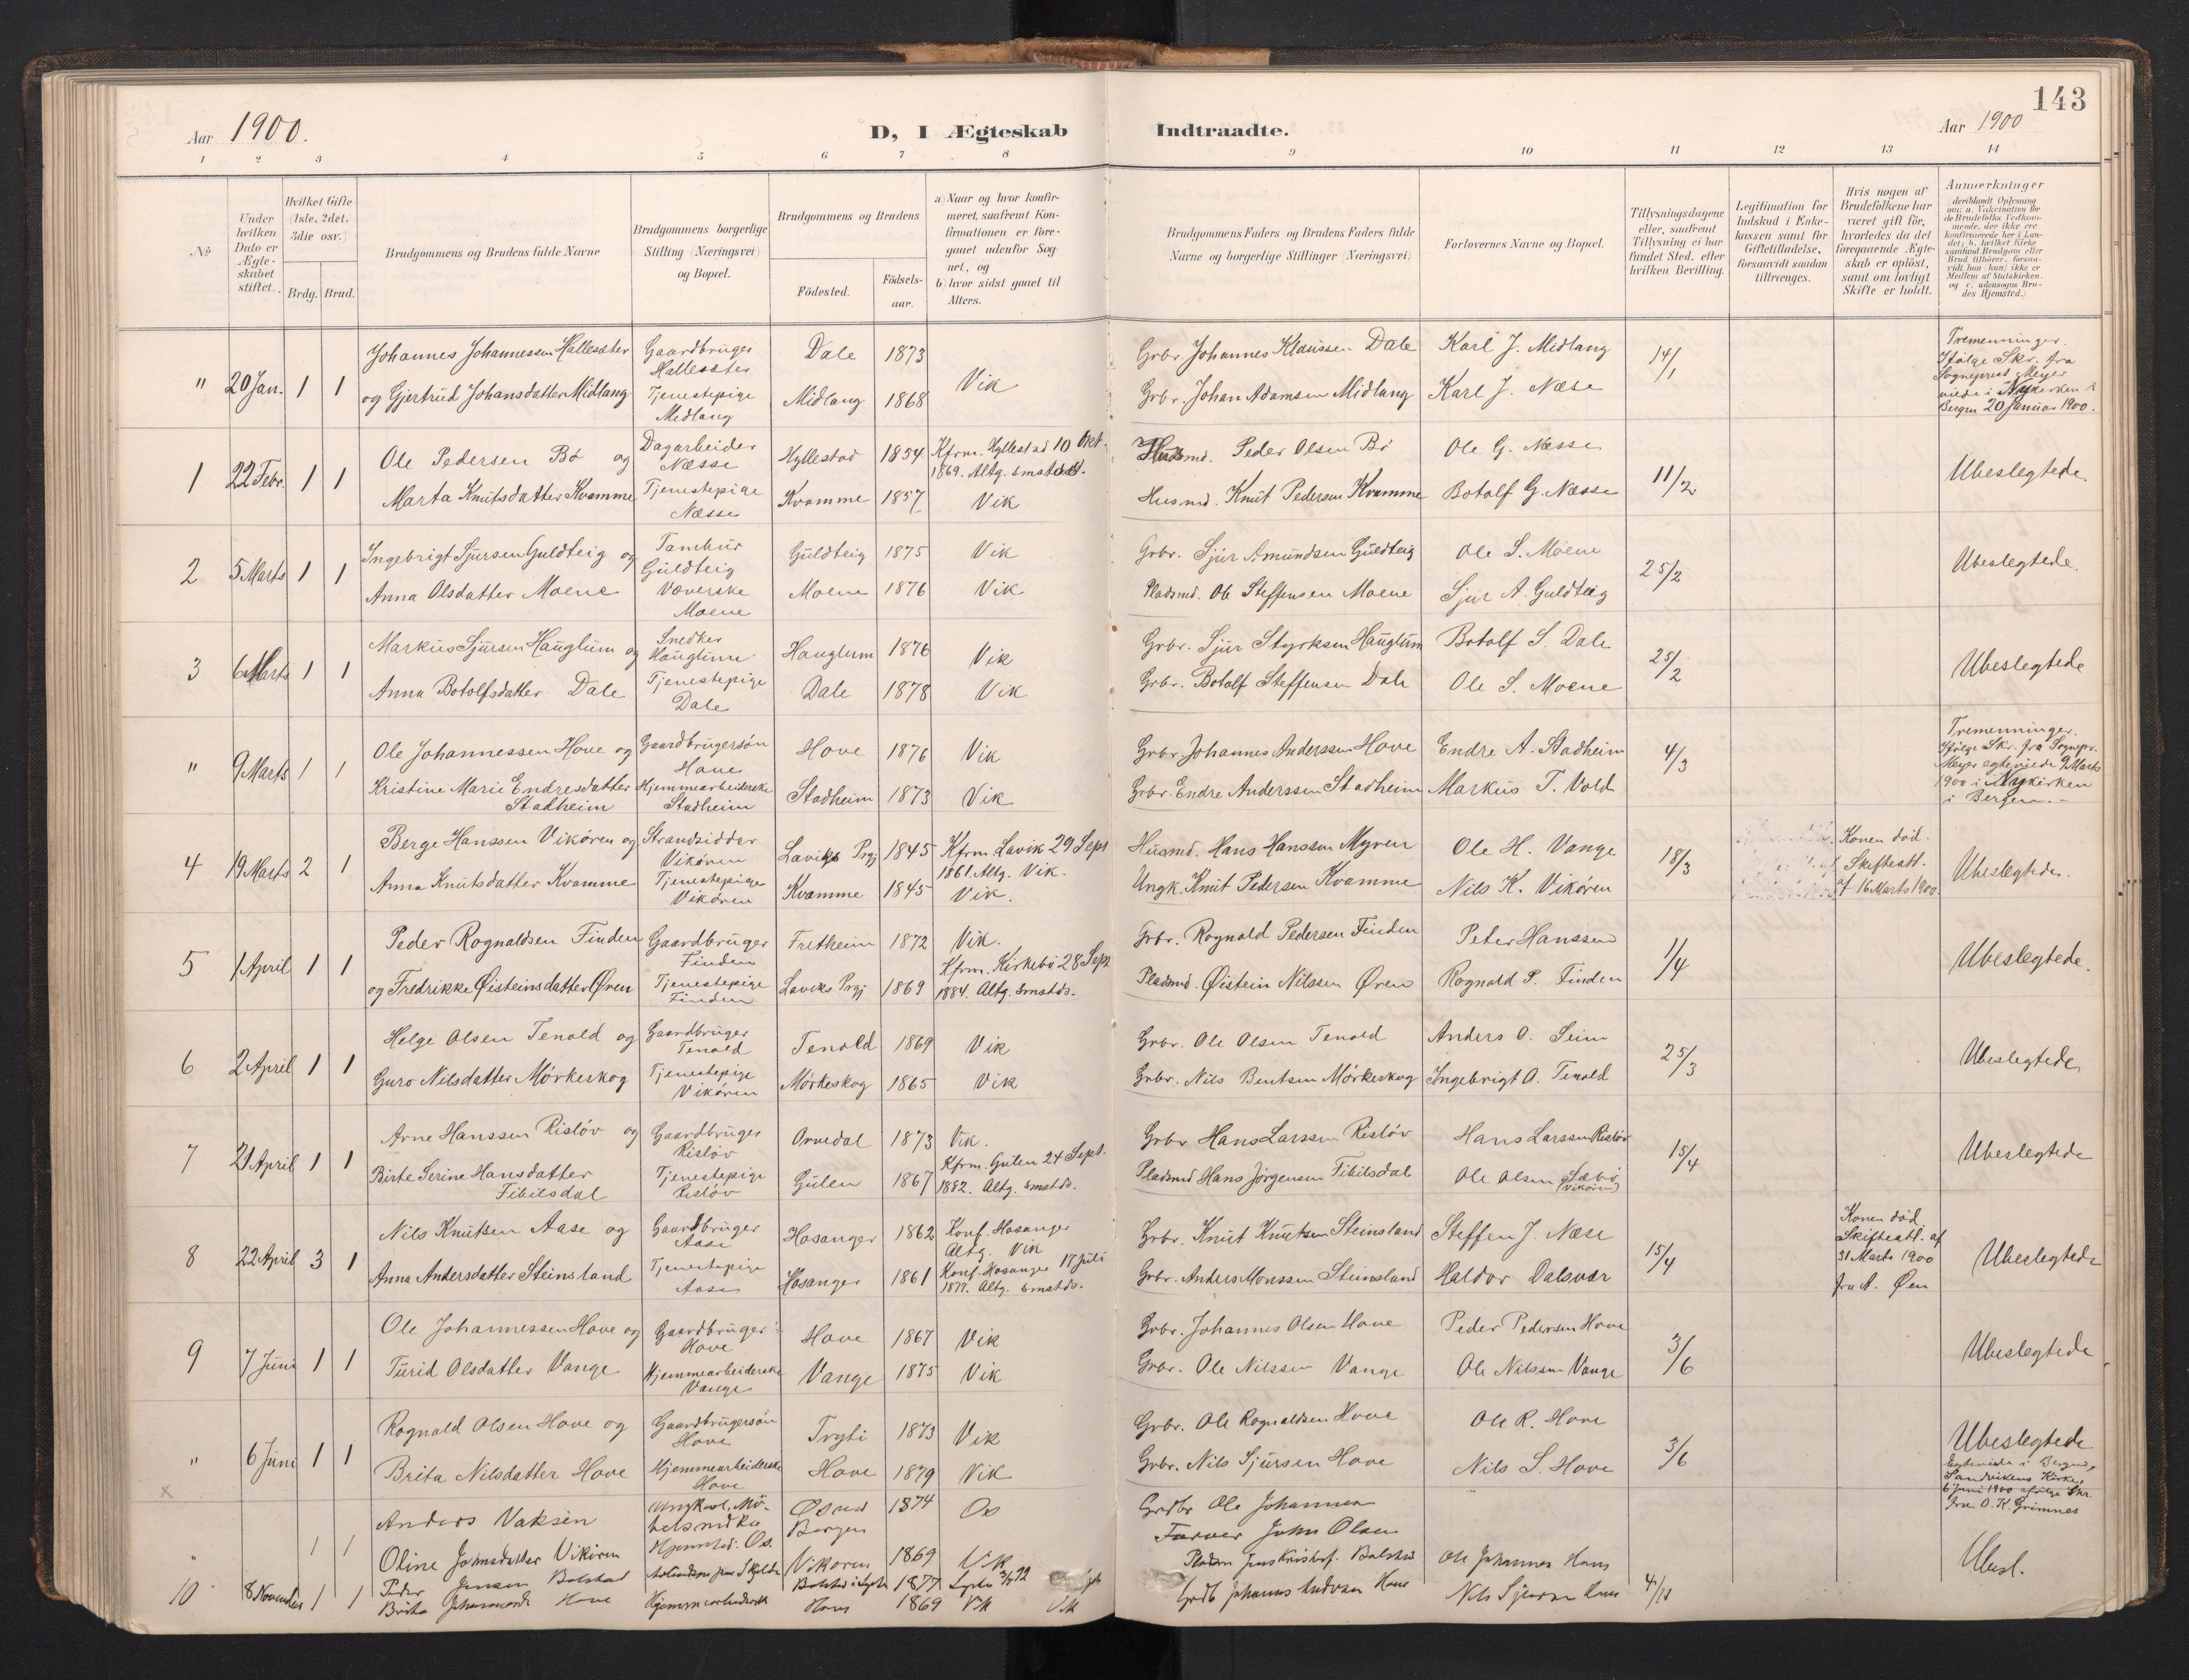 143
Aar 1900.
D, I Ægteskab Indtraadte.
Aar 1900
1 2 3 4 5 6 7 8 9 10 11 12 13 14
No
Under hvilken Dato er Ægteskabet stiftet.
Hvilket Gifte (1ste, 2det, 3die osv.)
Brdg. Brud.
Brudgommens og Brudens fulde Navne
Brudgommens borgerlige Stilling (Næringsvei) og Bopæl.
Brudgommens og Brudens
Födested.
Födselsaar.
a) Naar og hvor konfirmeret, saafremt Konfirmationen er foregaaet udenfor Sognet, og
b) hvor sidst gaaet til Alters.
Brudgommens Faders og Brudens Faders fulde Navne og borgerlige Stillinger (Næringsvei)
Forlovernes Navne og Bopæl.
Tillysningsdagene eller, saafremt Tillysning ei har fundet Sted, efter hvilken Bevilling.
Legitimation for Indskud i Enkekassen samt for Giftetilladelse, forsaavidt saadan tiltrænges.
Hvis nogen af Brudefolkene har været gift för, hvorledes da det foregaaende Ægteskab er oplöst, samt om lovligt Skifte er holdt.
Anmærkninger (deriblandt Oplysning om: a. Vakcination for de Brudefolks Vedkommende, der ikke ere konfirmerede her i Landet; b. hvilket Kirkesamfund Brudgom eller Brud tilhörer, forsaavidt han (hun) ikke er Medlem af Statskirken, og c. udensogns Brudes Hjemsted.)
" 20 Jan. 1 1 Johannes Johannessen Hallesæter Gaardbruger Hallesæter Dale 1873 Vik Grbr. Johannes Klaussen Dale Karl J. Midlang 14/1
og Gjertrud Johansdatter Midlang Tjenestepige Midlang Midlang 1868 Grbr. Johan Adamsen Midlang Karl J. Næse
Tremenninger. Ifølge Skr. fra Sogneprest Meyer viede i Nykirken i Bergen 20 Januar 1900.
1 22 Febr. 1 1 Ole Pedersen Bö og Dagarbeider Næsse Hyllestad 1854 Kfrm. Hyllestad 10 Okt. 1869. Altg. smstds. Husmd. Peder Olsen Bö Ole G. Næsse 11/2 Ubeslegtede.
Marta Knutsdatter Kvamme Tjenestepige Næsse Kvamme 1857 Vik Husmd. Knut Pedersen Kvamme Botolf G. Næsse
2 5 Marts 1 1 Ingebrigt Sjursen Guldteig og Tambur Guldteig Guldteig 1875 Vik Grbr. Sjur Amundsen Guldteig Ole S. Moene 25/2 Ubeslegtede.
Anna Olsdatter Moene Væverske Moene Moene 1876 Vik Pladsmd. Ole Steffensen Moene Sjur A. Guldteig
3 6 Marts 1 1 Markus Sjursen Hauglum og Snedker Hauglum Hauglum 1876 Vik Grbr. Sjur Styrksen Hauglum Botolf S. Dale 25/2 Ubeslegtede
Anna Botolfsdatter Dale Tjenestepige Dale Dale 1878 Vik Grbr. Botolf Steffensen Dale Ole S. Moene
" 9 Marts 1 1 Ole Johannessen Hove og Gaardbrugersön Hove Hove 1876 Vik Grbr. Johannes Anderssen Hove Endre A. Stadheim 4/3
Kristine Marie Endresdatter Stadheim Hjemmearbeiderske Stadheim Stadheim 1873 Vik Grbr. Endre Anderssen Stadheim Markus T. Vold
Tremenninger. Ifølge Skr. fra Sognepr. Meyer egteviede 9 Marts 1900 i Nykirken i Bergen.
4 19 Marts 2 1 Berge Hanssen Vikören og Strandsidder Vikören Laviks Prgj 1845 Kfrm Lavik 29 Sept 1861 Altg. Vik. Husmd. Hans Hanssen Myren Ole H. Vange 18/3 Konen död. Skifteatt. af 16 Marts 1900. Ubeslegtede.
Anna Knutsdatter Kvamme Tjenestepige Vikören Kvamme 1845 Vik. Ungk. Knut Pedersen Kvamme Nils K. Vikören
5 1 April 1 1 Peder Rognaldsen Finden Gaardbruger Finden Fretheim 1872 Vik. Grbr. Rognald Pedersen Finden Peter Hanssen 1/4 Ubeslegtede.
og Fredrikke Øisteinsdatter Øren Tjenestepige Finden Laviks Prgj 1869 Kfrm. Kirkebö 28 Sept 1884. Altg. smstds. Pladsmd. Øistein Nilssen Øren Rognald P. Finden
6 2 April 1 1 Helge Olsen Tenold og Gaardbruger Tenold Tenold 1869 Vik Grbr. Ole Olsen Tenold Anders O. Seim 25/3 Ubeslegtede
Guro Nilsdatter Mörkeskog Tjenestepige Vikören Mörkeskog 1865 Vik Grbr. Nils Bentsen Mörkeskog Ingebrigt O. Tenold
7 21 April 1 1 Arne Hanssen Rislöv og Gaardbruger Rislöv Orvedal 1873 Vik. Grbr Hans Larssen Rislöv Hans Larssen Rislöv 15/4 Ubeslegtede
Birte Serine Hansdatter Fibilsdal Tjenestepige Rislöv Gulen 1867 Kfrm. Gulen 24 Sept. 1882. Altg. smstds. Pladsmd Hans Jörgensen Fibilsdal Ole Olsen Læbö (Vikören)
8 22 April 3 1 Nils Knutsen Aase og Gaardbruger Aase Hosanger 1862 Konf. Hosanger Altg. Vik Grbr. Knut Knutsen Steinsland Steffen J. Næse 15/4 Konen död Skifteatt. af 31 Marts 1900 fra A. Øen Ubeslegtede
Anna Andersdatter Steinsland Tjenestepige Aase Hosanger 1861 Konf. Hosanger 17 Juli 1877. Altg. smstds. Grbr. Anders Monssen Steinsland Haldor Dalsvær
9 7 Juni 1 1 Ole Johannessen Hove og Gaardbruger Hove Hove 1867 Vik Grbr. Johannes Olsen Hove Peder Pedersen Hove 3/6 Ubeslegtede
Turid Olsdatter Vange Hjemmearbeiderske Vange Vange 1875 Vik Grbr. Ole Nilssen Vange Ole Nilssen Vange
" 6 Juni 1 1 Rognald Olsen Hove og Gaardbrugersön Hove Tryti 1873 Vik Grbr. Ole Rognaldsen Hove Ole R. Hove 3/6 Ubeslegtede
Brita Nilsdatter Hove Hjemmearbeiderske Hove Hove 1879 Vik Grbr. Nils Sjursen Hove Nils S. Hove
Egteviede i Bergen, Sandvikens Kirke, 6 Juni 1900 ifølge Skr. fra O. K. Grimnes
x
" 1 1 Anders Vaksen Ungkarl, Möbelsnedker Hjemsted: Os. 1874 Os Grdbr Ole Johannes
Bergen Farver John Olsen
Oline Johnsdatter Vikören Vikören 1869 Vik
10 8 November 1 1 Peder Jensen Bolstad 1877 Pladsm Jens Kristof. Bolstad Ole Johannes Hove 4/11 Ubesl.
Brita Johannesd. Hove Hjemmearbeiderske Hove 1869 Vik Vik Grdb Johannes Andersen Hove Nils Sjursen Hove